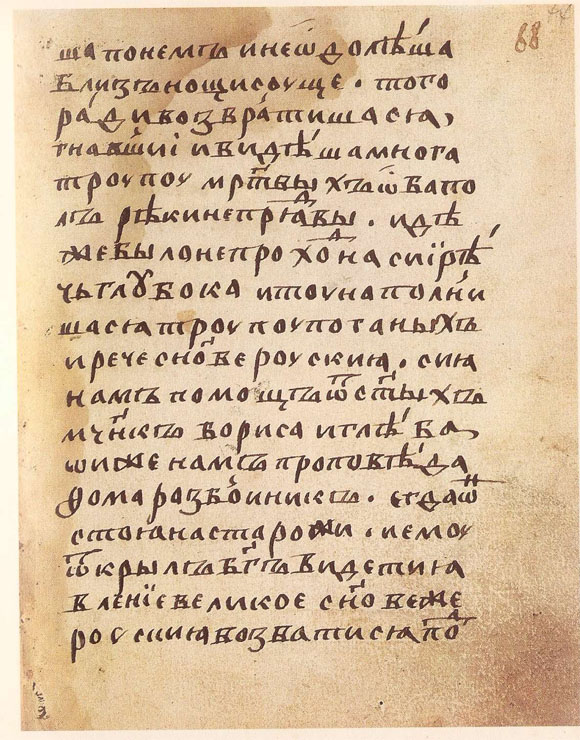 68
шапонемъ инеѿдолѣша
близъ нощисоуще · того
радивозвратишася,
гнавшиї ивидѣша многа
троупоу мр҃твыхъ ѡ҆бапо
лъ рѣкинепрѧⷣвы · идѣ
жебылонепрохоⷣнасиїрѣ
чьглꙋбока итоунаполни
шася троупоупоганыхъ
иречесн҃овероуския · сия
намъ помощъ ѿст҃ыхъ
мч҃нкъ бориса иглѣба,
ѡнижe намъ проповѣда
ѳома розбоиникъ · егда ѿ
стоянастарожи · иемоу
ѿкрылъ бг҃ъ видетия
вленїевеликое сн҃овеже
роускиявозватися поⷣ